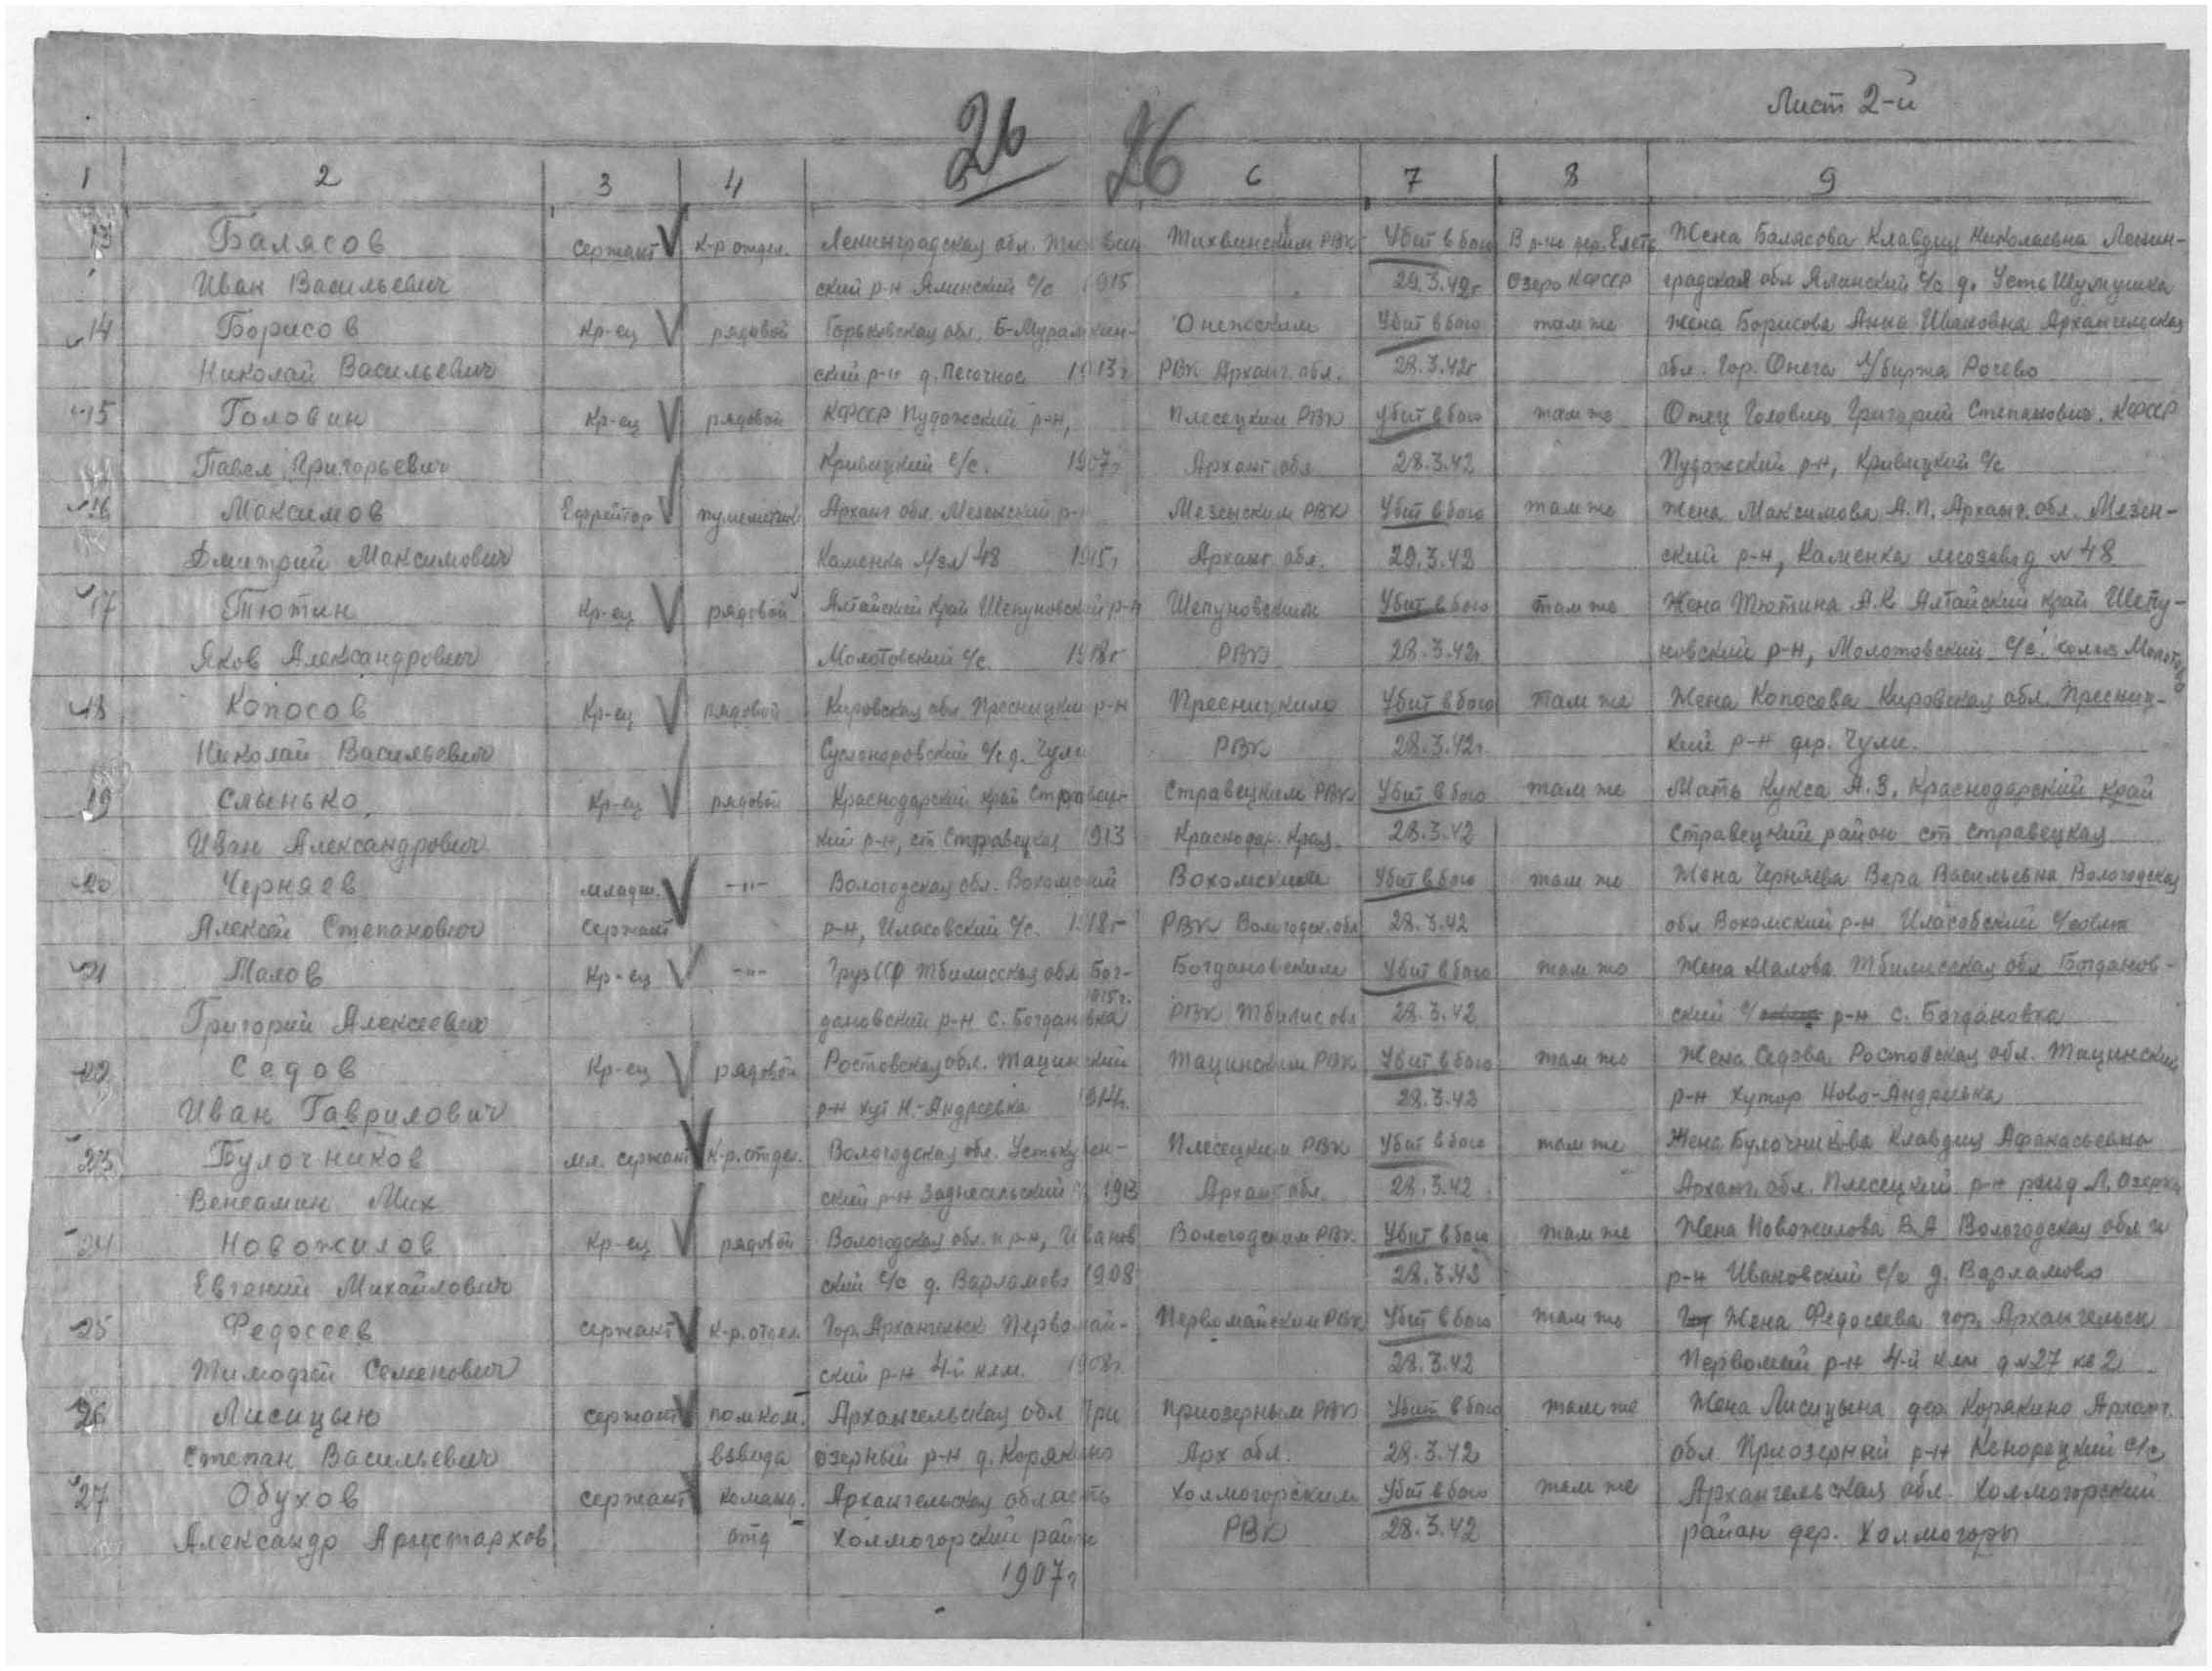 Лист 2-й
26 26
1 2 3 4 6 7 8 9
13 Балясов сержант к-р отдел. Ленинградская обл. Тихвин Тихвинским РВК Убит в бою В р-не дер. Елеть Жена Балясова Клавдия Николаевна Ленин-
Иван Васильевич ский р-н Ялинский с/с 1915 29.3.42г Озеро КФССР градская обл Ялинский с/с д. Усть Шумушка
14 Борисов Кр-ец рядовой Горьковская обл. Б-Мурашкин- Онежским Убит в бою там же Жена Борисова Анна Ивановна Архангельская
Николай Васильевич ский р-н д. Песочное 1913г РВК Арханг. обл. 28.3.42г обл. гор. Онега Рочево
15 Головин Кр-ец рядовой КФССР Пудожский р-н, Плесецким РВК Убит в бою там же Отец Головин Григорий Степанович. КФССР
Павел Григорьевич Кривецкий с/с. 1907г Арханг обл 28.3.42 Пудожский р-н, Кривецкий с/с
16 Максимов Ефрейтор пулеметчик Арханг обл. Мезенский р- Мезенским РВК Убит в бою там же Жена Максимова А.П. Арханг. обл. Мезен-
Дмитрий Максимович Каменка л/з N 48 1915г Арханг. обл. 29.3.42 ский р-н, Каменка лесозавод N 48
17 Тютин Кр-ец рядовой Алтайский край Шепуновский р-н Шепуновским Убит в бою там же Жена Тютина А.К Алтайский край Шепу-
Яков Александрович Молотовский с/с. 1918г РВК 28.3.42г новский р-н, Молотовский с/с. колхоз Молотова
18 Копосов Кр-ец рядовой Кировская обл Пресницкий р-н Пресницким Убит в бою там же Жена Копосова Кировская обл. Пресниц-
Николай Васильевич с/с д. Чули РВК 28.3.42г. кий р-н дер. Чули.
19 Слынько Кр-ец рядовой Краснодарский край Стравец- Стравецким РВК Убит в бою там же Мать Кукса А.З. Краснодарский край
Иван Александрович кий р-н, ст Стравецкая 913 Краснодар. Края. 28.3.42 Стравецкий район ст стравецкая
20 Черняев младш. -"- Вологодская обл. Вохомский Вохомским Убит в бою там же Жена Черняева Вера Васильевна Вологодская
Алексей Степанович сержант р-н, Иласовский с/с. 1918г РВК Вологодск. обл 28.3.42 обл Вохомский р-н Иласовский с/совет
21 Малов Кр-ец -"- ГрузССР Тбилисская обл Бог- Богдановским Убит в бою там же Жена Малова Тбилисская обл Богданов-
1915г.
Григорий Алексеевич дановский р-н с. Богдановка РВК Тбилис обл 28.3.42 ский р-н с. Богдановка
22 Седов Кр-ец рядовой Ростовская обл. Тацинский Тацинским РВК Убит в бою там же Жена Седова Ростовская обл. Тацинский
Иван Гаврилович р-н хут Н.-Андреевка 1914г. 28.3.42 р-н хутор Ново-Андреевка
23 Булочников мл. сержант к-р. отдел. Вологодская обл. Устькубен- Плесецким РВК Убит в бою там же Жена Булочникова Клавдия Афанасьевна
Венеамин Мих ский р-н Заднесельский 1913 Арханг обл 28.3.42 Арханг. обл. Плесецкий р-н Л. Озерки
24 Новожилов Кр-ец рядовой Вологодская обл. и р-н, Иванов Вологодским РВК. Убит в бою там же Жена Новожилова В.А Вологодская обл и
Евгений Михайлович ский с/с д. Варламово 1908 28.3.42 р-н Ивановский с/с д. Варламово
25 Федосеев сержант к-р. отдел. Гор. Архангельск Первомай- Первомайским РВК Убит в бою там же Жена Федосеева гор. Архангельск
Тимофей Семенович ский р-н 4-й клм. 1908г. 28.3.42 Первомай р-н 4-й клм д N27 кв 2
26 Лисицын сержант пом ком. Архангельская обл При Приозерным РВК Убит в бою там же Жена Лисицына дер Корякино Арханг.
Степан Васильевич взвода озерный р-н д. Корякино Арх обл. 28.3.42 обл Приозерный р-н Кенорецкий с/с
27 Обухов сержант команд. Архангельская область Холмогорским Убит в бою там же Архангельская обл. Холмогорский
Александр Аристархов отд Холмогорский район РВК 28.3.42 район дер. Холмогоры
1907г